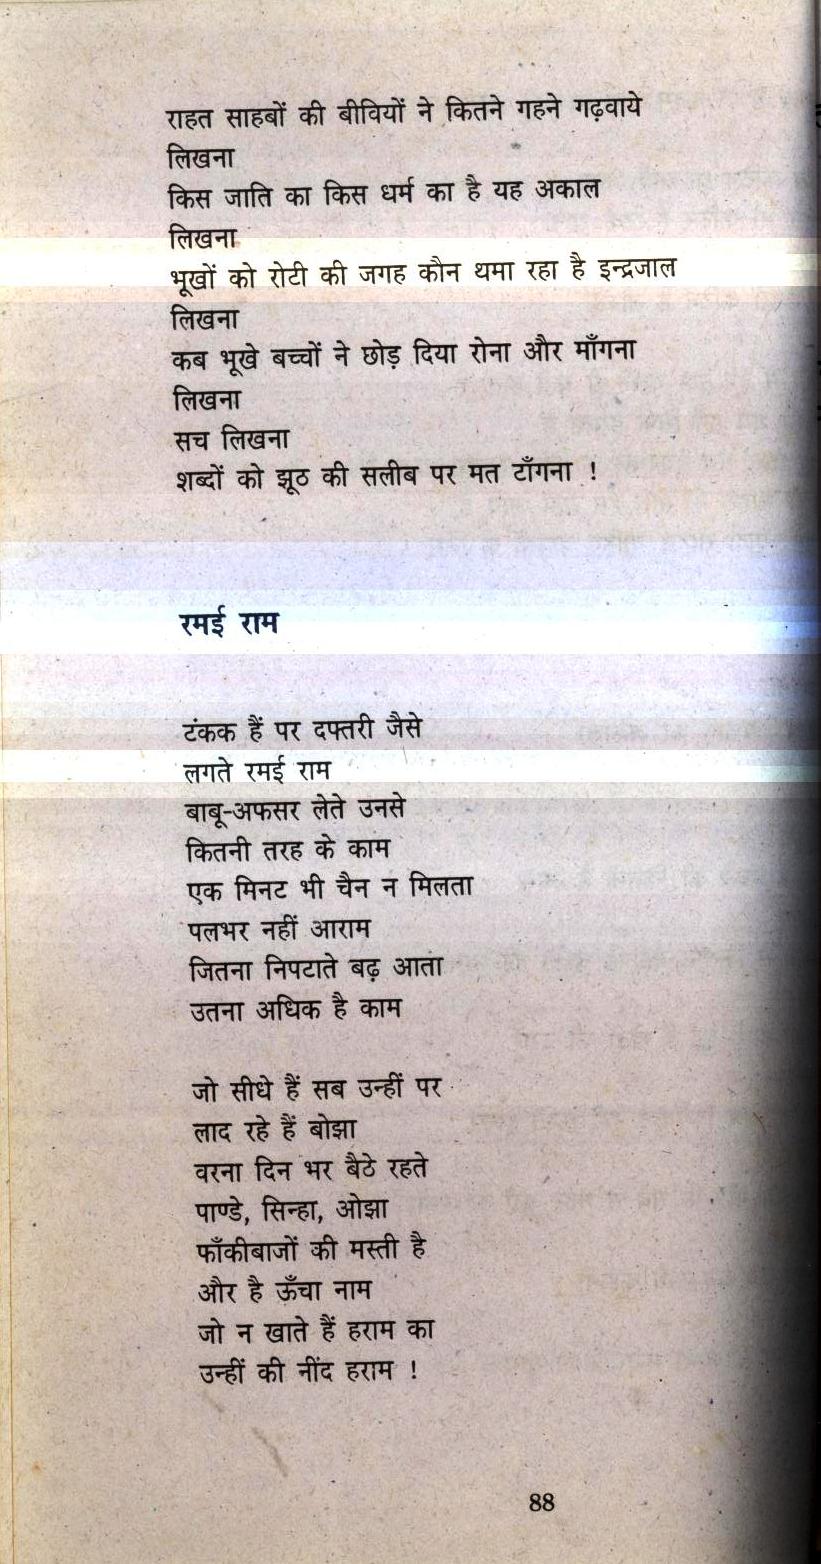 राहत साहबों की बीवियों ने कितने गहने गढ़वाये
लिखना
किस जाति का किस धर्म का है यह अकाल
लिखना
भूखों को रोटी की जगह कौन थमा रहा है इन्द्रजाल
लिखना
कब भूखे बच्चों ने छोड़ दिया रोना और माँगना
लिखना
सच लिखना
शब्दों को झूठ की सलीब पर मत टाँगना !
रमई राम
टंकक हैं पर दफ्तरी जैसे
लगते रमई राम
बाबू-अफसर लेते उनसे
कितनी तरह के काम
एक मिनट भी चैन न मिलता
पलभर नहीं आराम
जितना निपटाते बढ़ आता
उतना अधिक है काम
जो सीधे हैं सब उन्हीं पर
लाद रहे हैं बोझा
वरना दिन भर बैठे रहते
पाण्डे, सिन्हा, ओझा
फाँकीबाजों की मस्ती है
और है ऊँचा नाम
जो न खाते हैं हराम का
उन्हीं की नींद हराम !
88